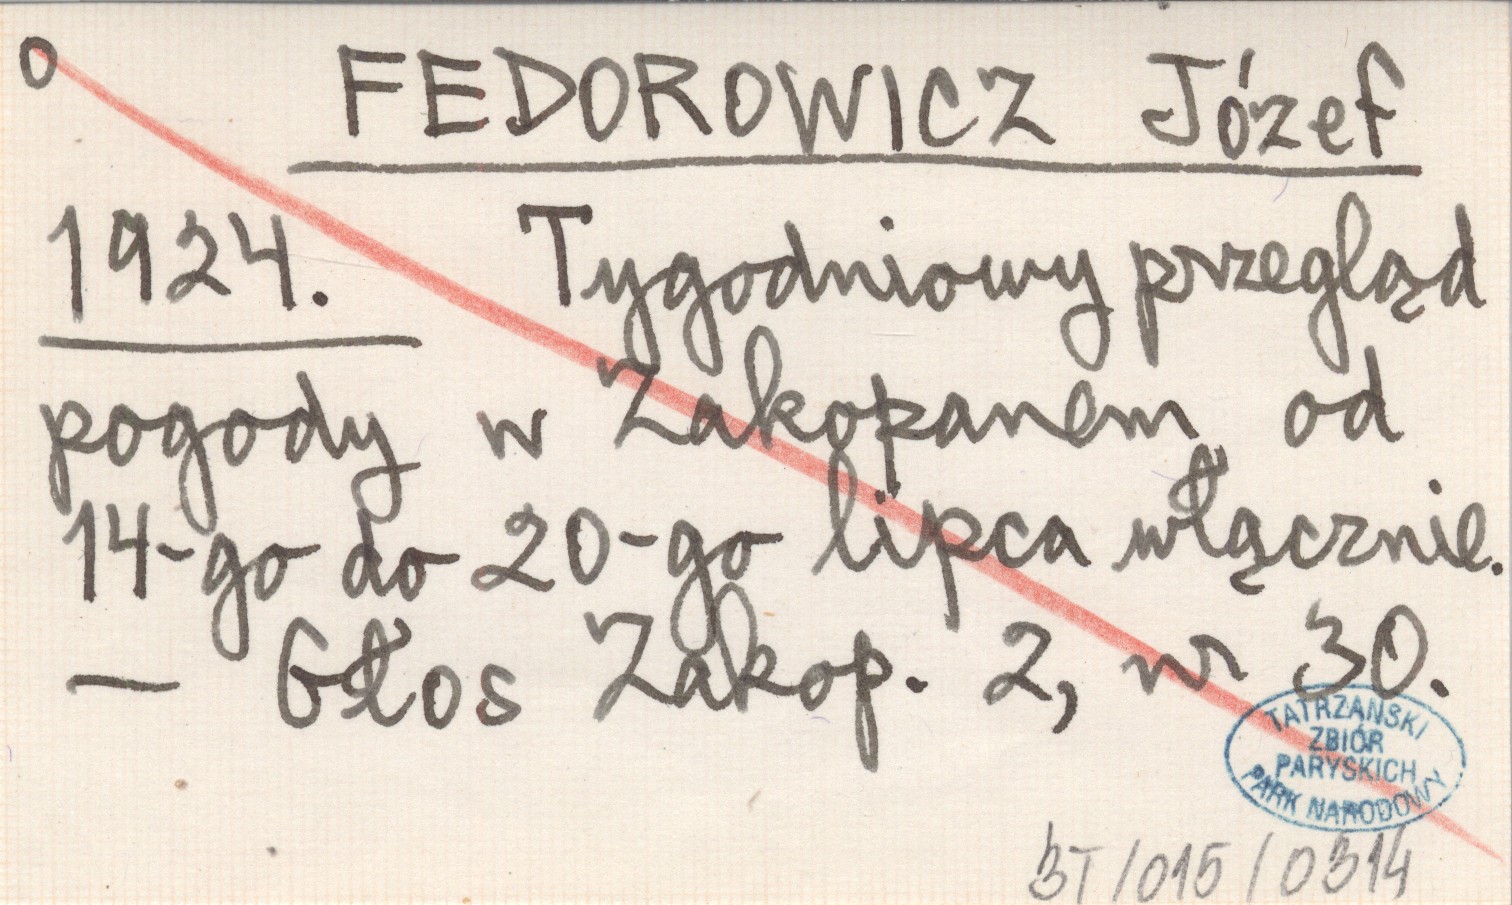 o FEDOROWICZ Józef
1924. Tygodniowy przegląd
pogody w Zakopanem od
14-go do 20-go lipca włącznie.
— Głos Zakop. 2, nr 30.
TATRZAŃSKI
ZBIÓR
PARYSKICH
PARK NARODOWY
3T/015/0314